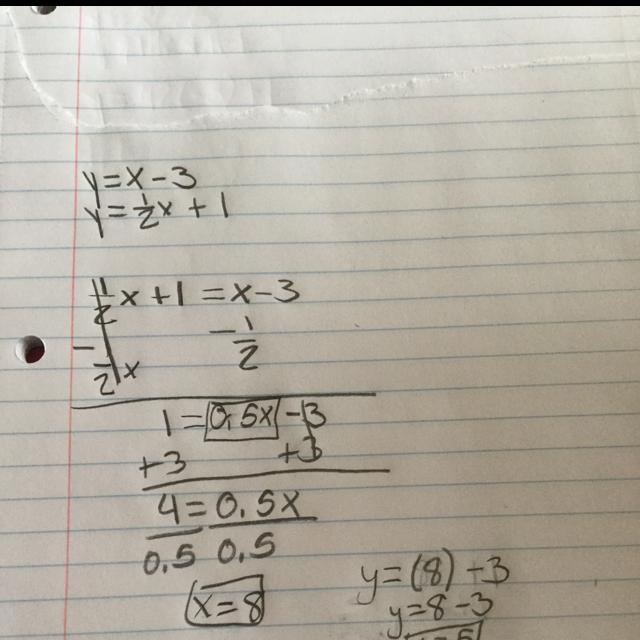 y=x-3
y=1/2x+1
1/2x+1=x-3
-1/2x -1/2
1=0.5x-3
+3 +3
4=0.5x
0.5 0.5
x=8
y=(8)-3
y=8-3